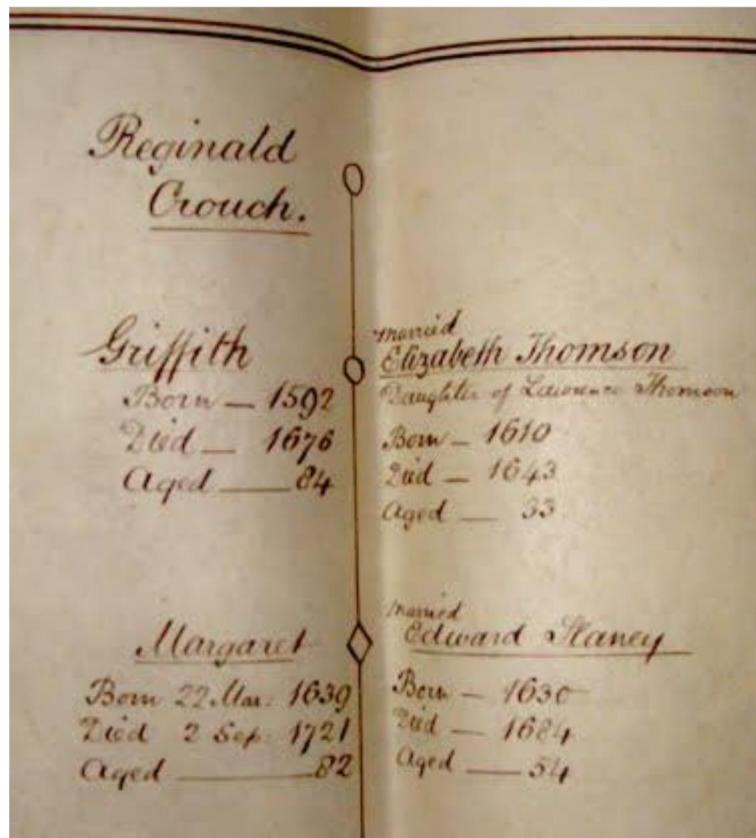 Reginald
Crouch.
Griffith
Born — 1592
Died — 1676
Aged — 84
married
Elizabeth Thomson
Daughter of Lawrence Thomson
Born — 1610
Died — 1643
Aged — 33
Margaret
Born 22 Mar: 1639
Died 2 Sep: 1721
Aged — 82
married
Edward Slaney
Born — 1630
Died — 1684
Aged — 54